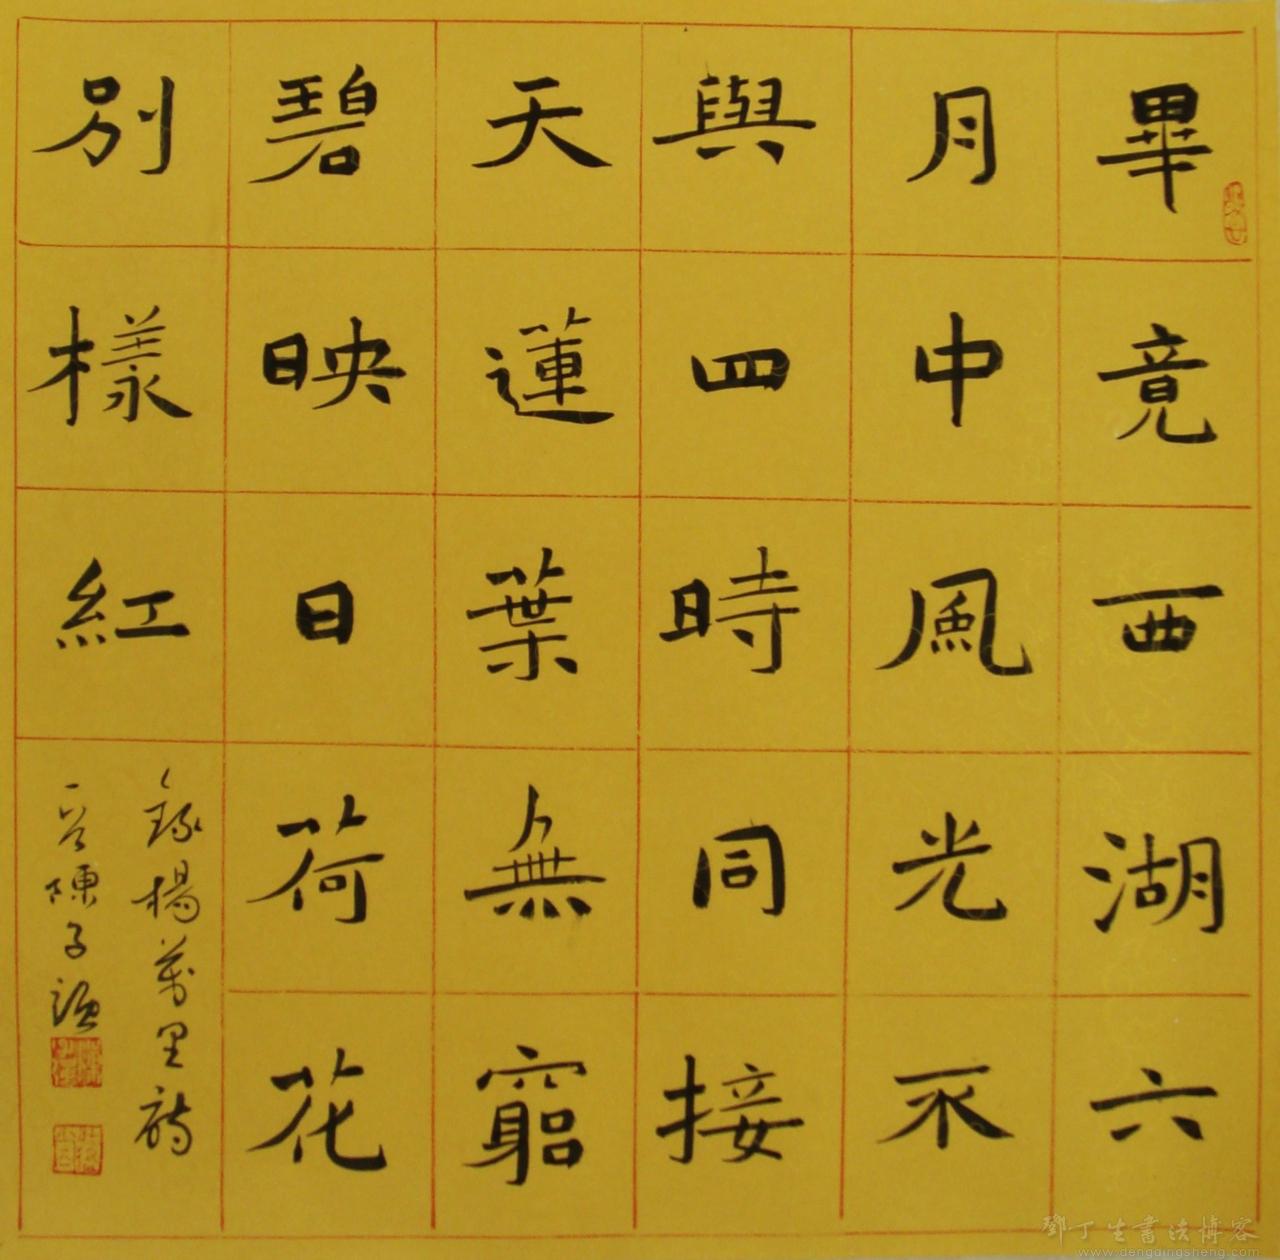 畢竟西湖六
月中風光不
與四時同接
天蓮葉無窮
碧映日荷花
別樣紅
錄楊萬里詩
陳子
鄧丁生書法博客
www.dengdingsheng.com